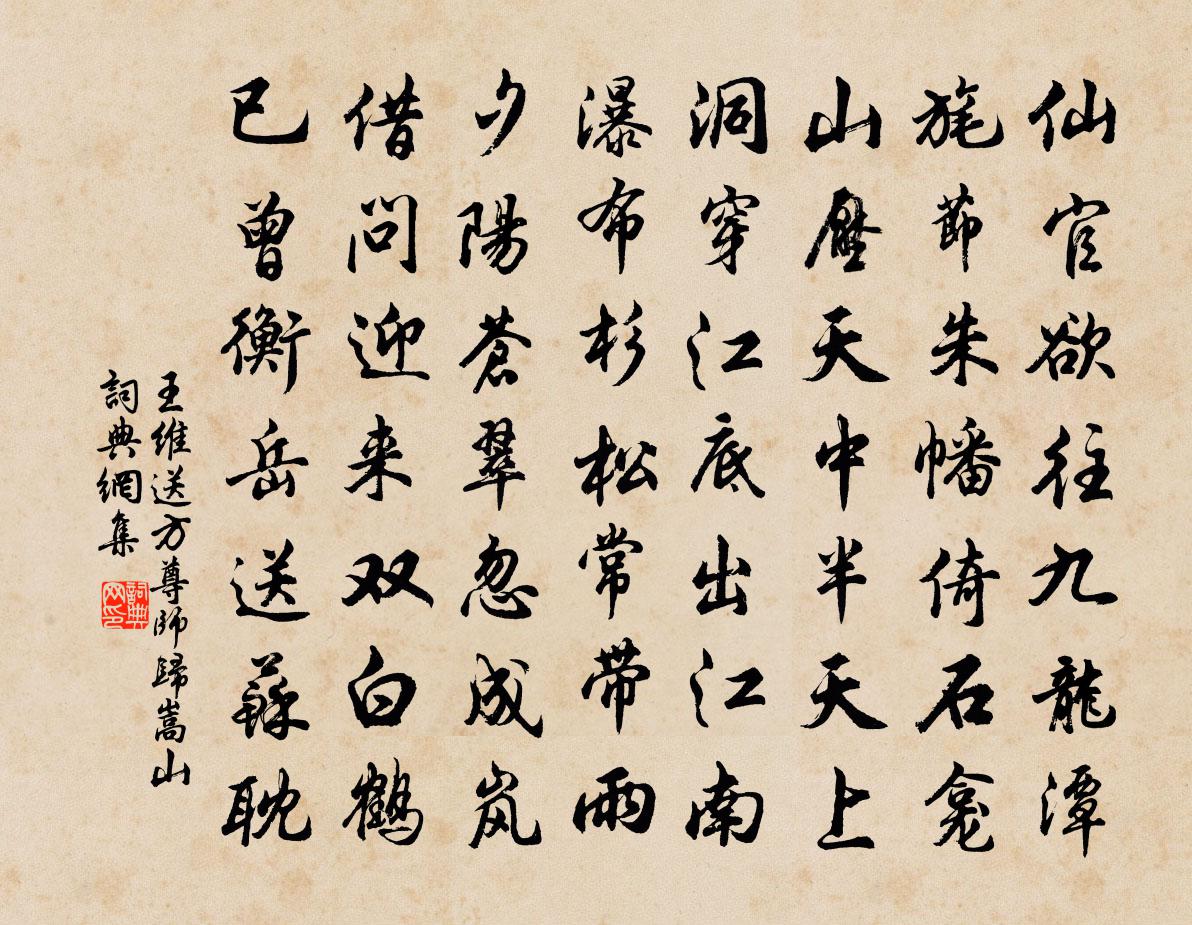 仙官欲往九龍潭
旄節朱幡倚石龕
山壓天中半天上
洞穿江底出江南
瀑布杉松常帶雨
夕陽蒼翠忽成岚
借问迎来双白鶴
已曾衡岳送蘇耽
王維送方尊師歸嵩山
詞典網集
詞典网印